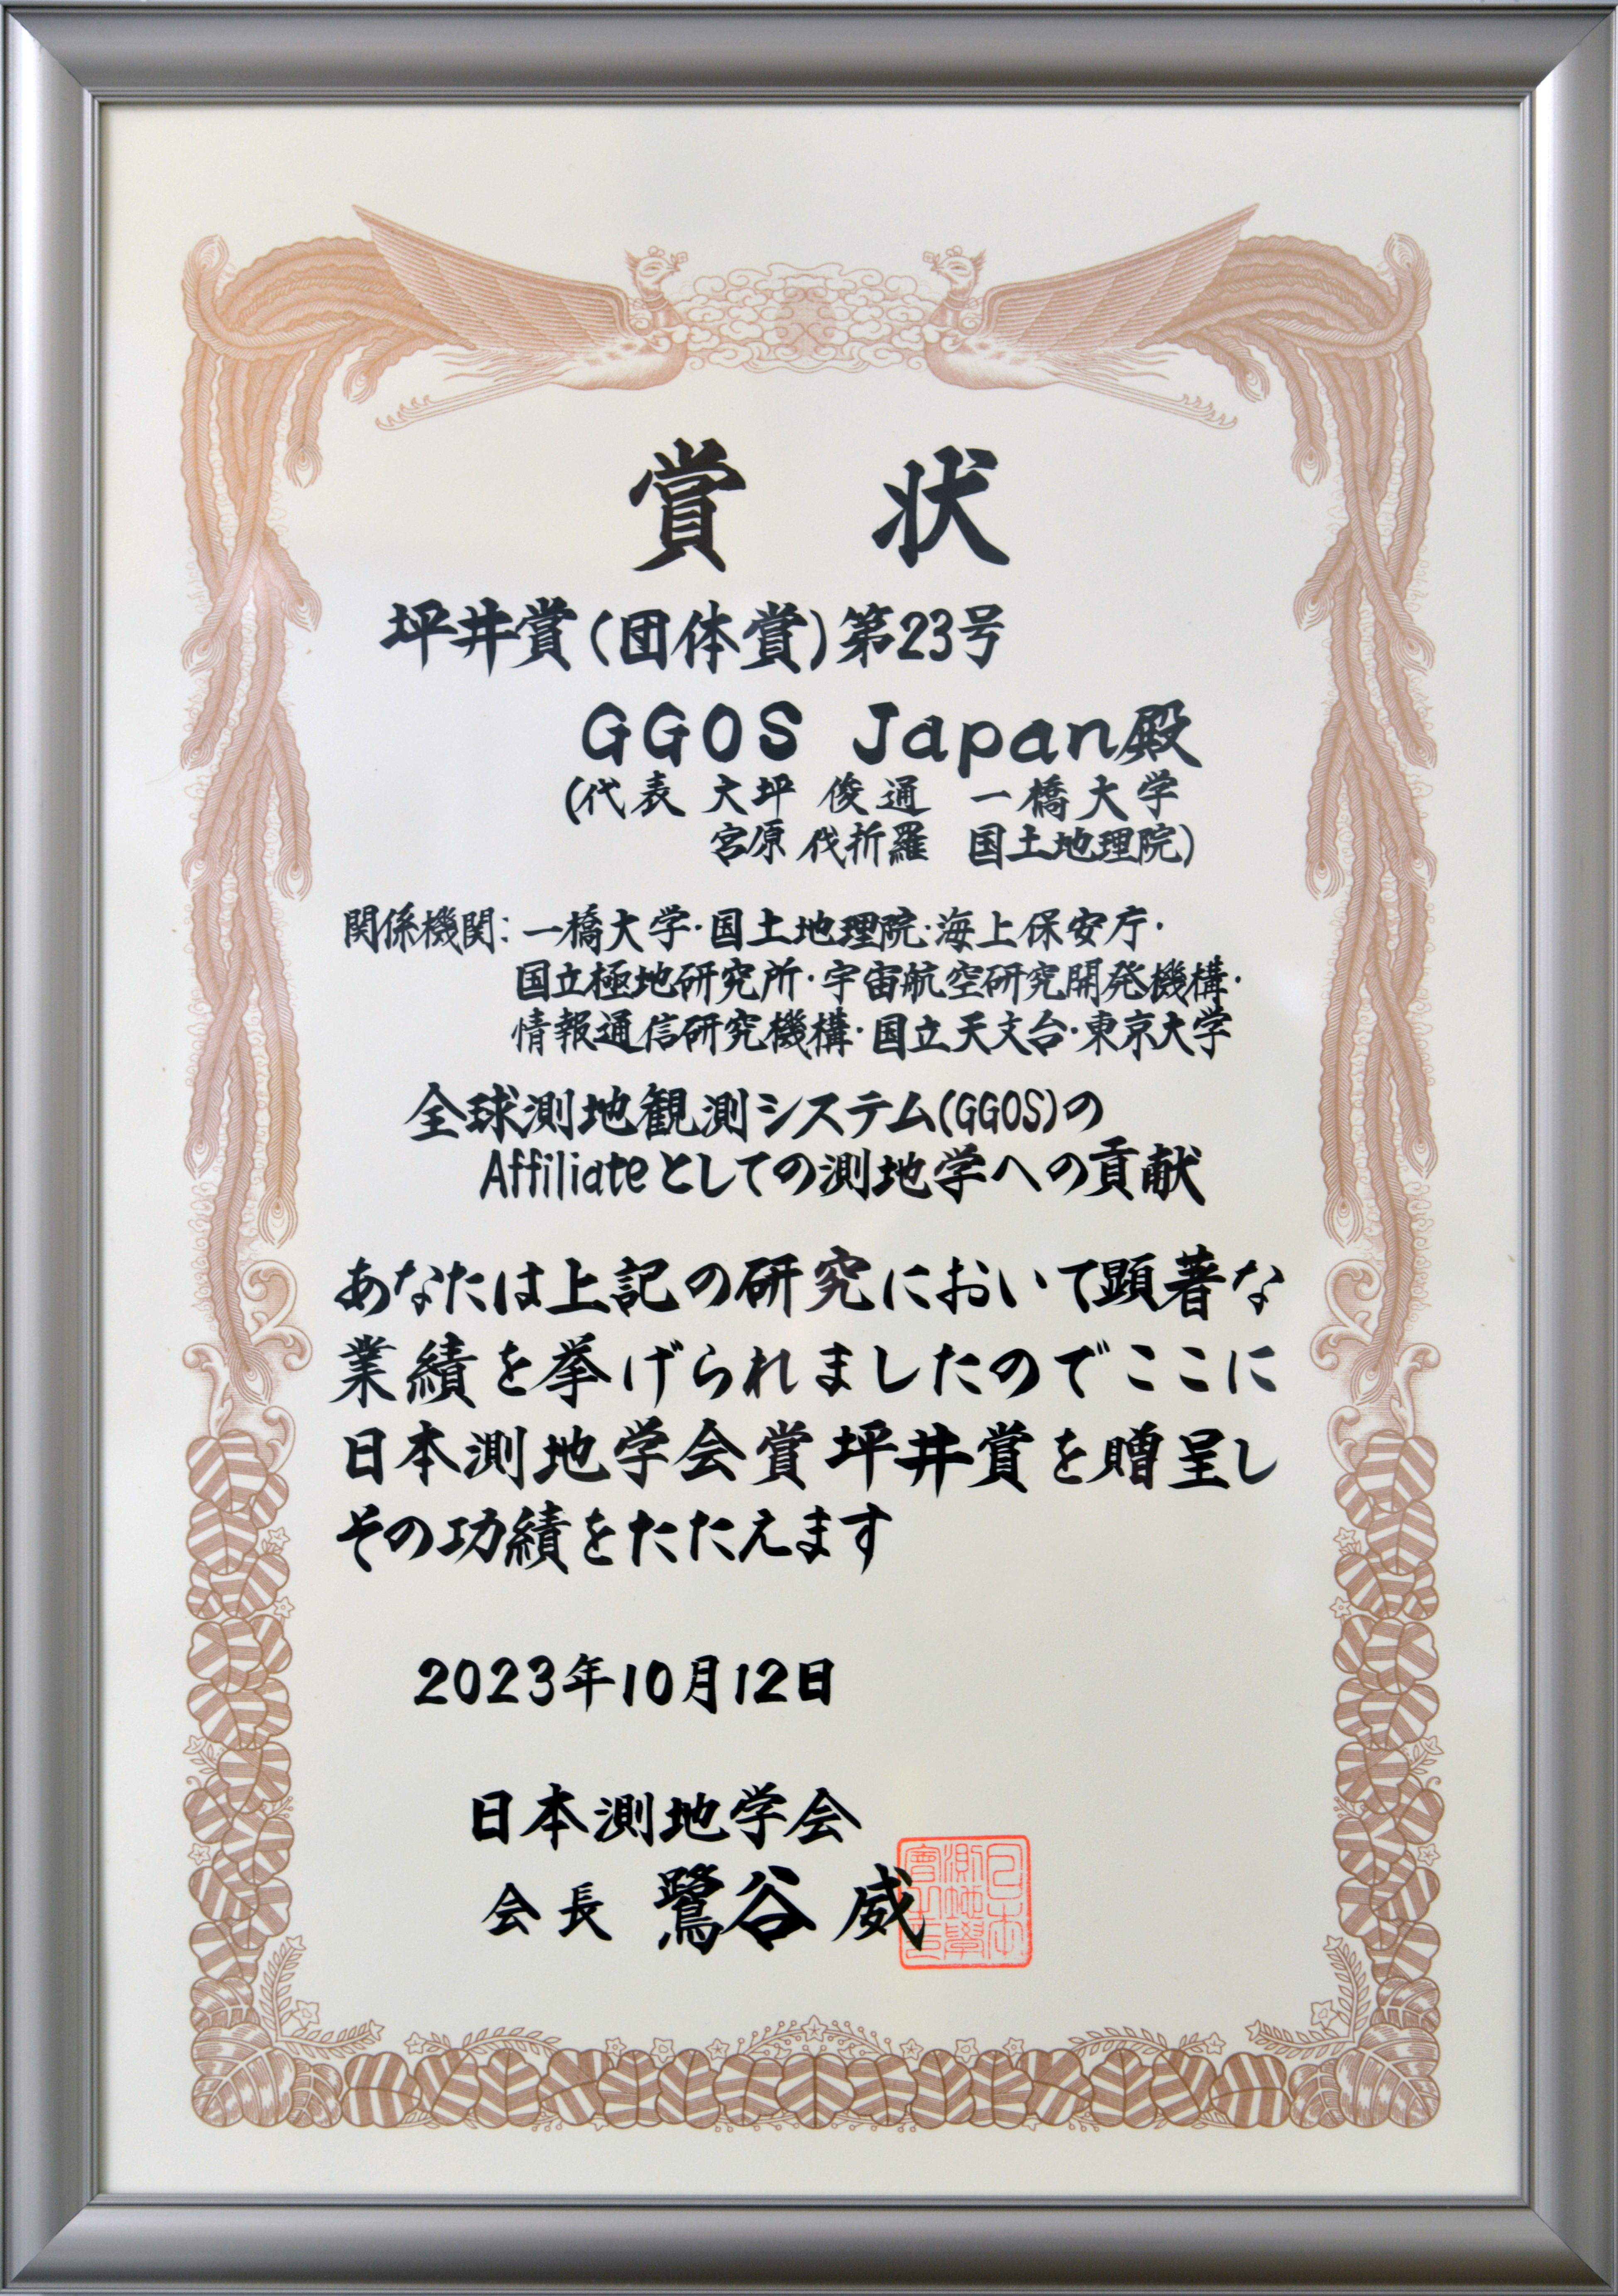 賞状
坪井賞(団体賞)第23号
GGOS Japan殿
(代表 大坪 俊通 一橋大学
宮原 伐折羅 国土地理院)
関係機関:一橋大学・国土地理院・海上保安庁・
国立極地研究所・宇宙航空研究開発機構・
情報通信研究機構・国立天文台・東京大学
全球測地観測システム(GGOS)の
Affiliateとしての測地学への貢献
あなたは上記の研究において顕著な
業績を挙げられましたのでここに
日本測地学会賞坪井賞を贈呈し
その功績をたたえます
2023年10月12日
日本測地学会
会長 鷺谷 威